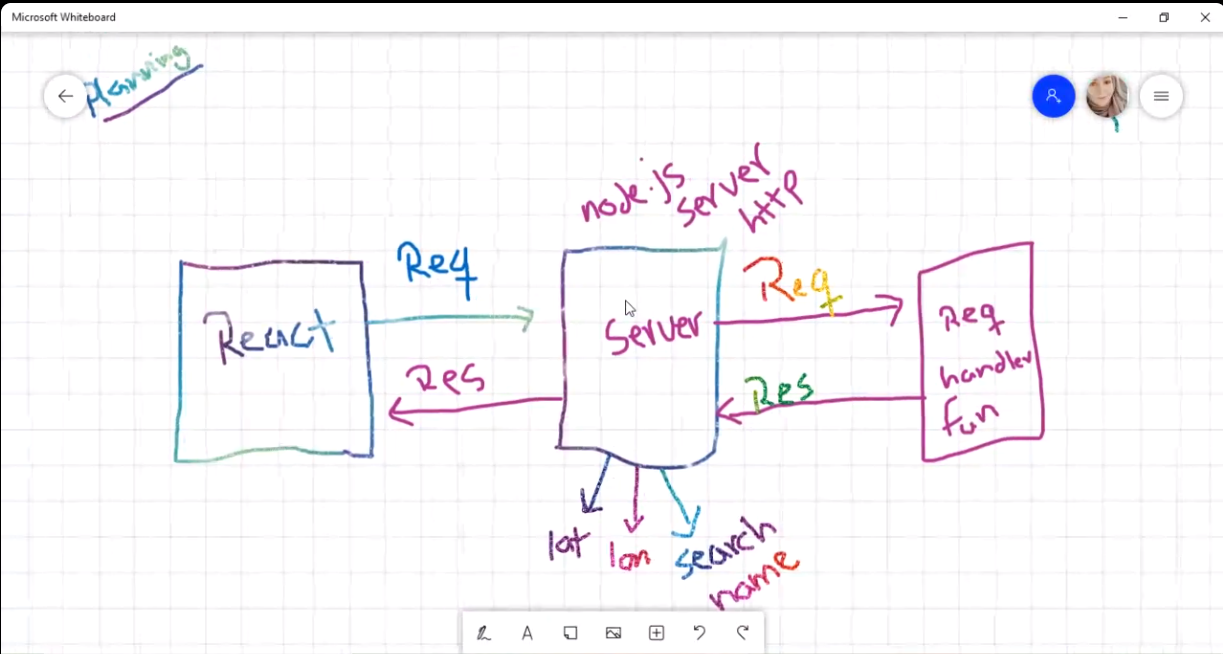 Microsoft Whiteboard
planning
node.js
server
http
Req
Req
React
Server
Req
handler
fun
Res
Res
lat
lon
search
name